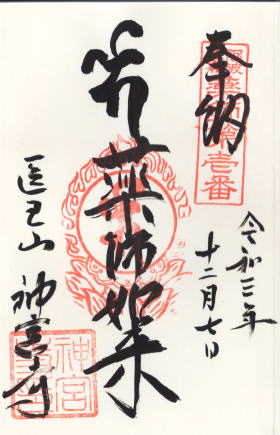 奉納
令和三年
十二月七日
薬師如来
医王山 神宮寺
壱番
神宮